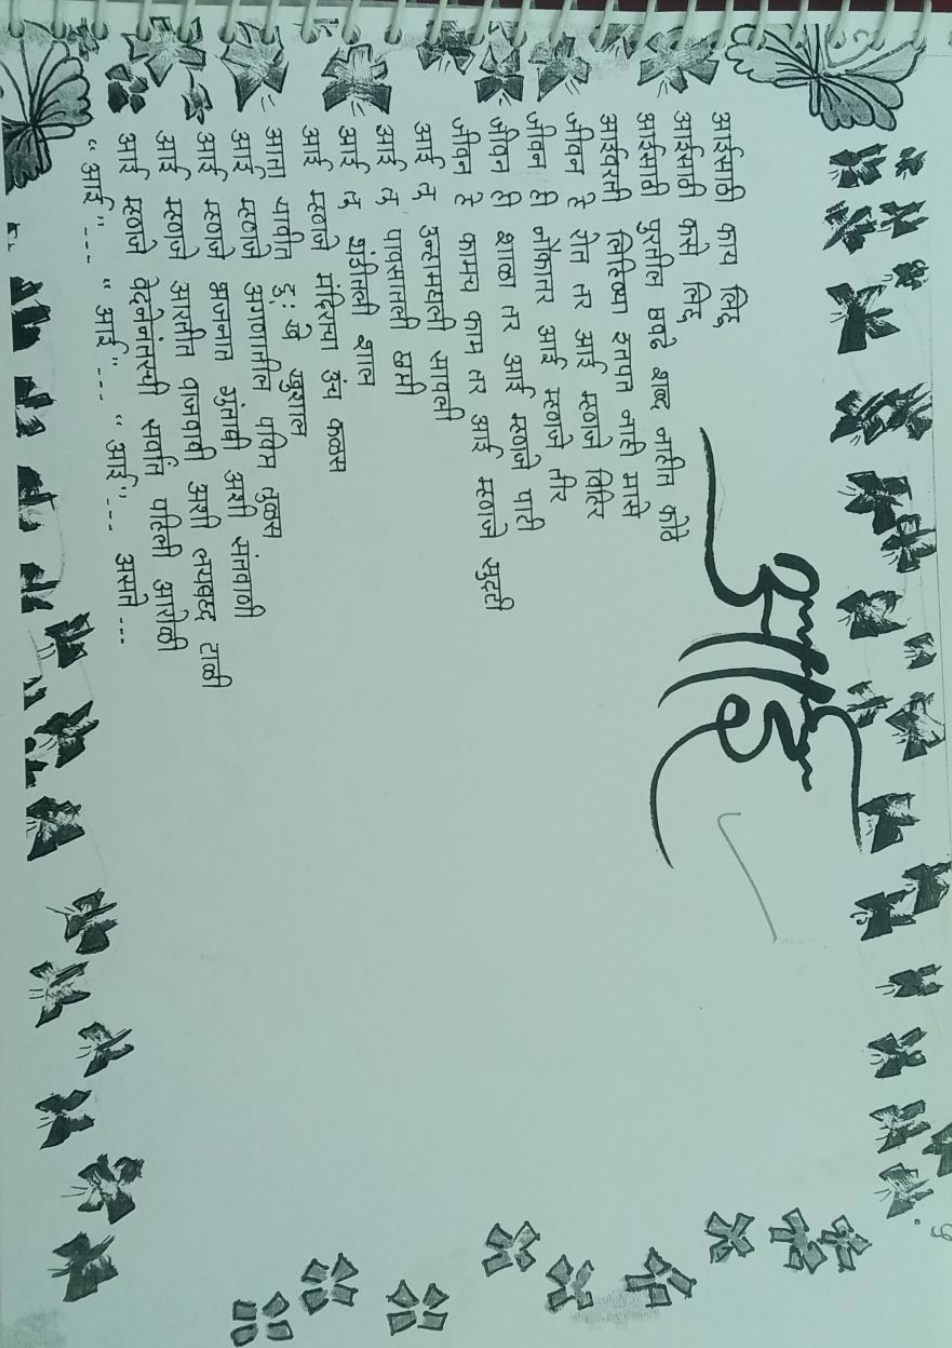 आई
आईसाठी काय लिहू
आईसाठी कसे लिहू
आईसाठी पुरतील एवढे शब्द नाहीत कोठे
आईवरती लिहिण्या इतपत नाही मोठे
जीवन हे शेत तर आई म्हणजे विहिर
जीवन ही नौकातर आई म्हणजे तीर
जीवन ही शाळा तर आई म्हणजे पाटी
जीवन हे कामच काम तर आई म्हणजे सुट्टी
आई तू उन्हामधली सावली
आई तू पावसातली छत्री
आई तू थंडीतली शाल
आई म्हणजे मंदिराचा उंच कळस
आता यावीत दुःखे खुशाल
आई म्हणजे अंगणातील पवित्र तुळस
आई म्हणजे भजनात गुंतावी अशी संतवाणी
आई म्हणजे आरतीत वाजवावी अशी लयबद्द टाळी
आई म्हणजे वेदनेनंतरची सर्वात पहिली आरोळी
"आई" --- "आई" --- "आई" --- असते ---